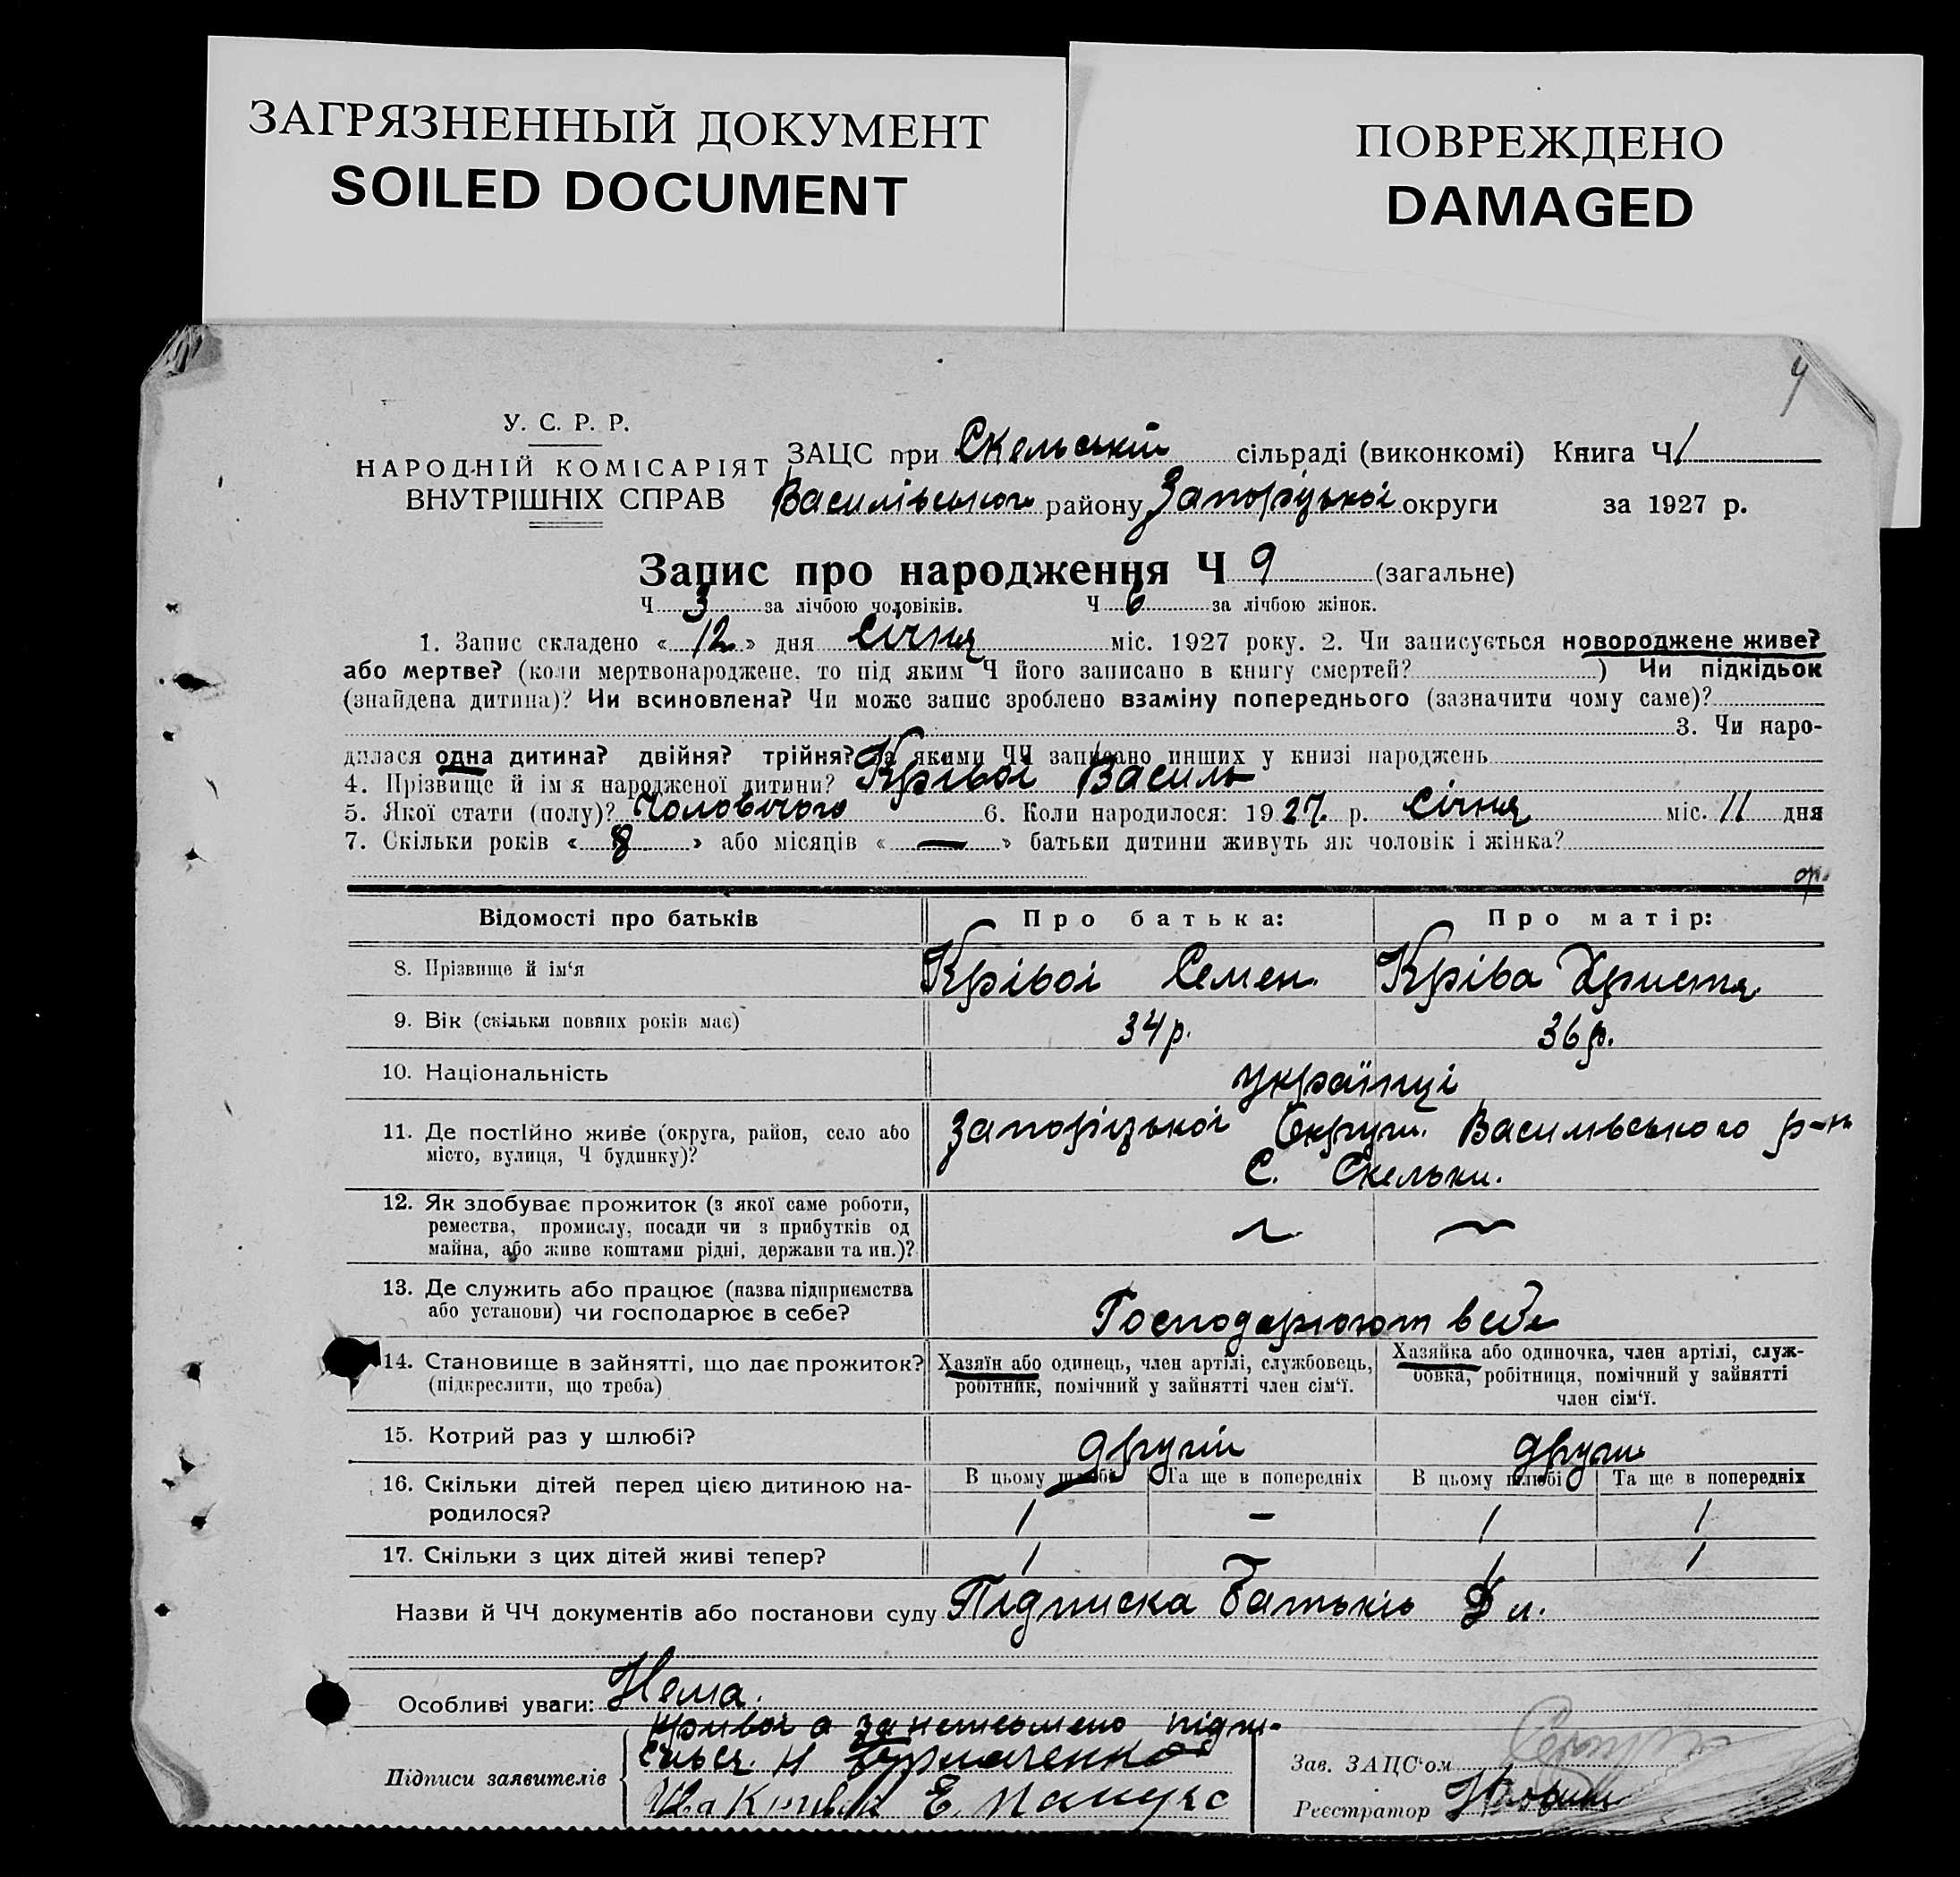 ЗАГРЯЗНЕННЫЙ ДОКУМЕНТ
SOILED DOCUMENT
ПОВРЕЖДЕНО
DAMAGED
У. С. Р. Р.
НАРОДНІЙ КОМІСАРІЯТ
ВНУТРІШНІХ СПРАВ
ЗАЦС при Скельській сільраді (виконкомі) Книга Ч 1
Василівського району Запоріцької округи за 1927 р.
Запис про народження Ч 9 (загальне)
Ч 3 за лічбою чоловіків. Ч 6 за лічбою жінок.
1. Запис складено « 12 » дня Січня міс. 1927 року. 2. Чи записується новороджене живе?
або мертве? (коли мертвонароджене, то під яким Ч його записано в книгу смертей? ) Чи підкідьок
(знайдена дитина)? Чи всиновлена? Чи може запис зроблено взаміну попереднього (зазначити чому саме)?
3. Чи наро-
дилася одна дитина? двійня? трійня? За якими ЧЧ записано инших у книзі народжень
4. Прізвище й імя народженої дитини? Крівоі Василь
5. Якої стати (полу)? Чоловічого 6. Коли народилося: 1927. р. Січня міс. 11 дня
7. Скільки років « 8 » або місяців « — » батьки дитини живуть як чоловік і жінка?
Відомості про батьків Про батька: Про матір:
8. Прізвище й ім‘я Крівоі Семен. Кріва Христя
9. Вік (скільки повних років має) 34 р. 36 р.
10. Національність українці
11. Де постійно живе (округа, район, село або Запоріцькоі Округи. Василівського р-н
місто, вулиця, Ч будинку)? С. Скельки.
12. Як здобуває прожиток (з якої саме роботи,
ремества, промислу, посади чи з прибутків од
майна, або живе коштами рідні, держави та ин.)?
13. Де служить або працює (назва підприємства
або установи) чи господарює в себе? Господарюют в себе
14. Становище в зайнятті, що дає прожиток? Хазяїн або одинець, член артілі, службовець, Хазяйка або одиночка, член артілі, служ-
(підкреслити, що треба) робітник, помічний у зайнятті член сім‘ї. бовка, робітниця, помічний у зайнятті
член сім‘ї.
15. Котрий раз у шлюбі? другій други
16. Скільки дітей перед цією дитиною на- В цьому шлюбі Та ще в попередніх В цьому шлюбі Та ще в попередніх
родилося? 1 — 1 1
17. Скільки з цих дітей живі тепер? 1 — 1 1
Назви й ЧЧ документів або постанови суду Підписка Батьків
Особливі уваги: Нема.
за неписьмено підпи-
Підписи заявителів
Зав. ЗАЦС‘ом
Реєстратор